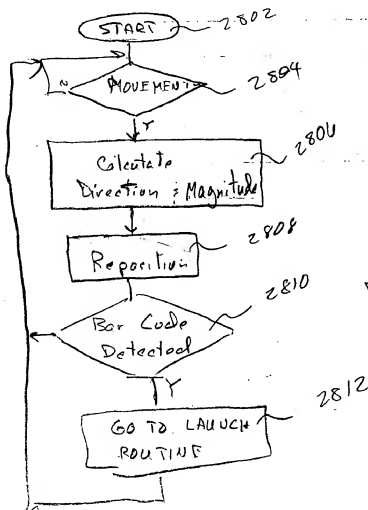 START
2802
MOVEMENT
2804
N
Y
Calculate
Direction & Magnitude
2806
Reposition
2808
Bar Code
Detected
2810
Y
GO TO LAUNCH
ROUTINE
2812